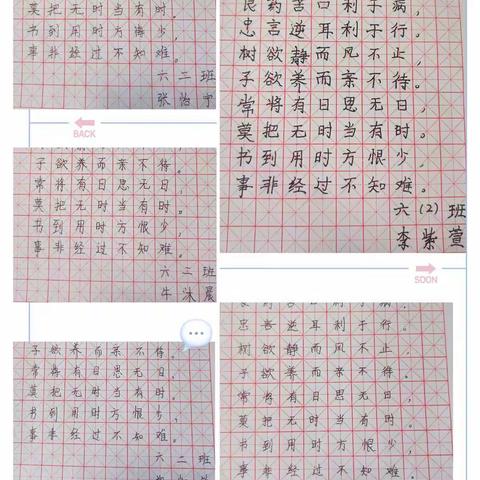 莫把无时当有时。
书到用时方悔少,
事非经过不知难。
六二班
张怡宁
BACK
子欲养而亲不待。
常将有日思无日,
莫把无时当有时。
书到用时方恨少,
事非经过不知难。
六二班
牛沐晨
子欲养而亲不待。
常将有日思无日,
莫把无时当有时。
书到用时方恨少,
事非经过不知难。
六二班
良药苦口利于病,
忠言逆耳利于行。
树欲静而风不止,
子欲养而亲不待。
常将有日思无日,
莫把无时当有时。
书到用时方恨少,
事非经过不知难。
六(2)班
李紫萱
SOON
良药苦口利于病,
忠言逆耳利于行。
树欲静而风不止,
子欲养而亲不待。
常将有日思无日,
莫把无时当有时。
书到用时方恨少,
事非经过不知难。